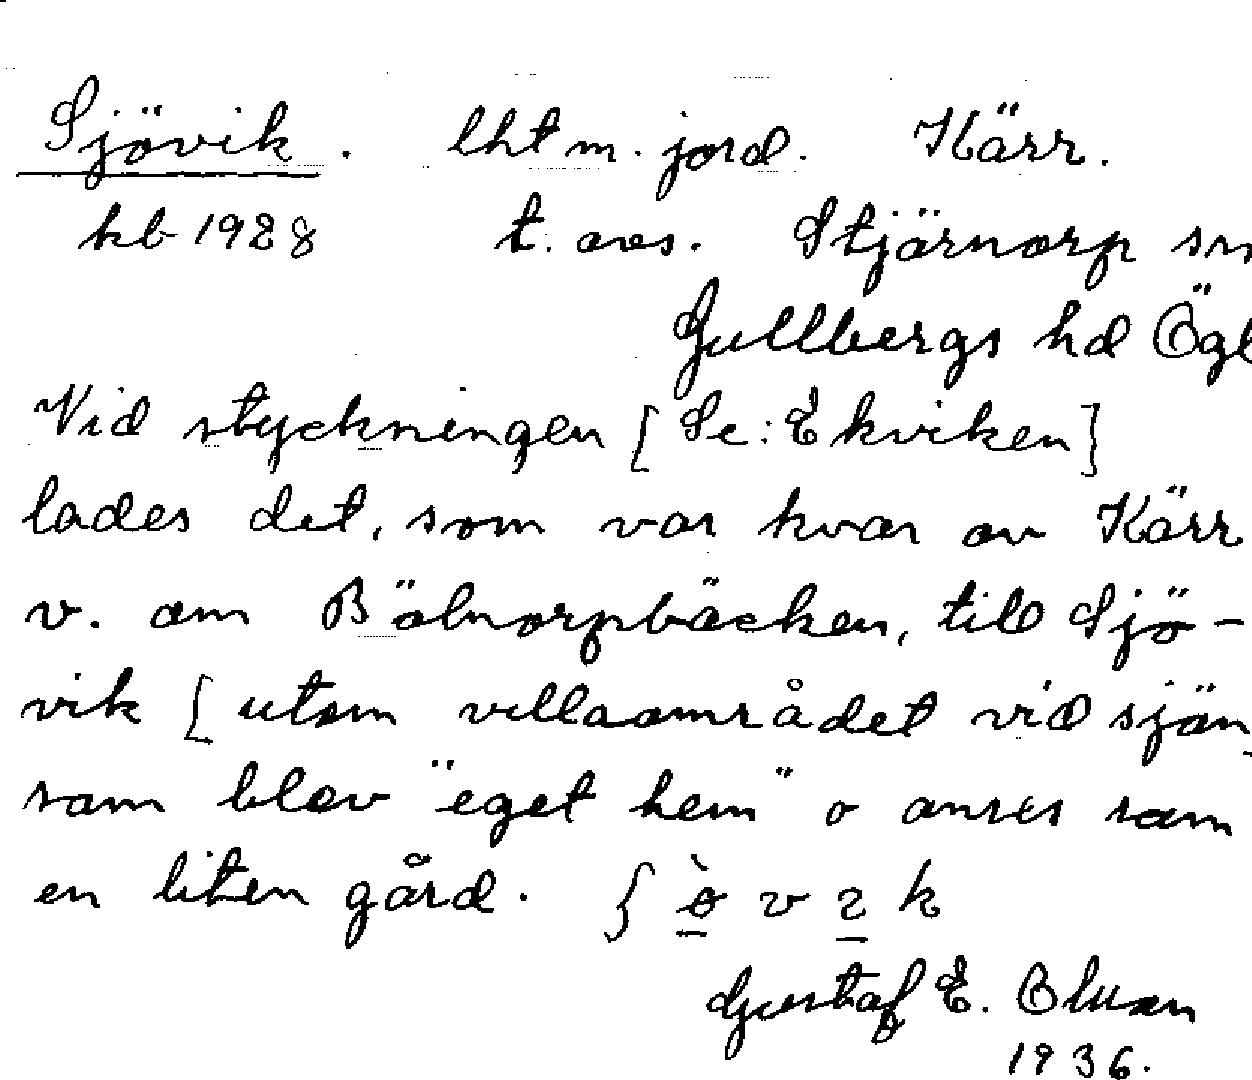 Sjövik. lht m. jord. Kärr.
kb 1928 t. avs. Stjärnorp sn
Gullbergs hd Ögl
Vid styckningen [Se: Ekviken]
lades det, som var kvar av Kärr
v. om Bölnorpbäcken, till Sjö-
vik [utom villaområdet vid sjön,
som blev "eget hem" o anses som
en liten gård. ʃ ò v ɪ k
Gustaf E. Olsson
1936.